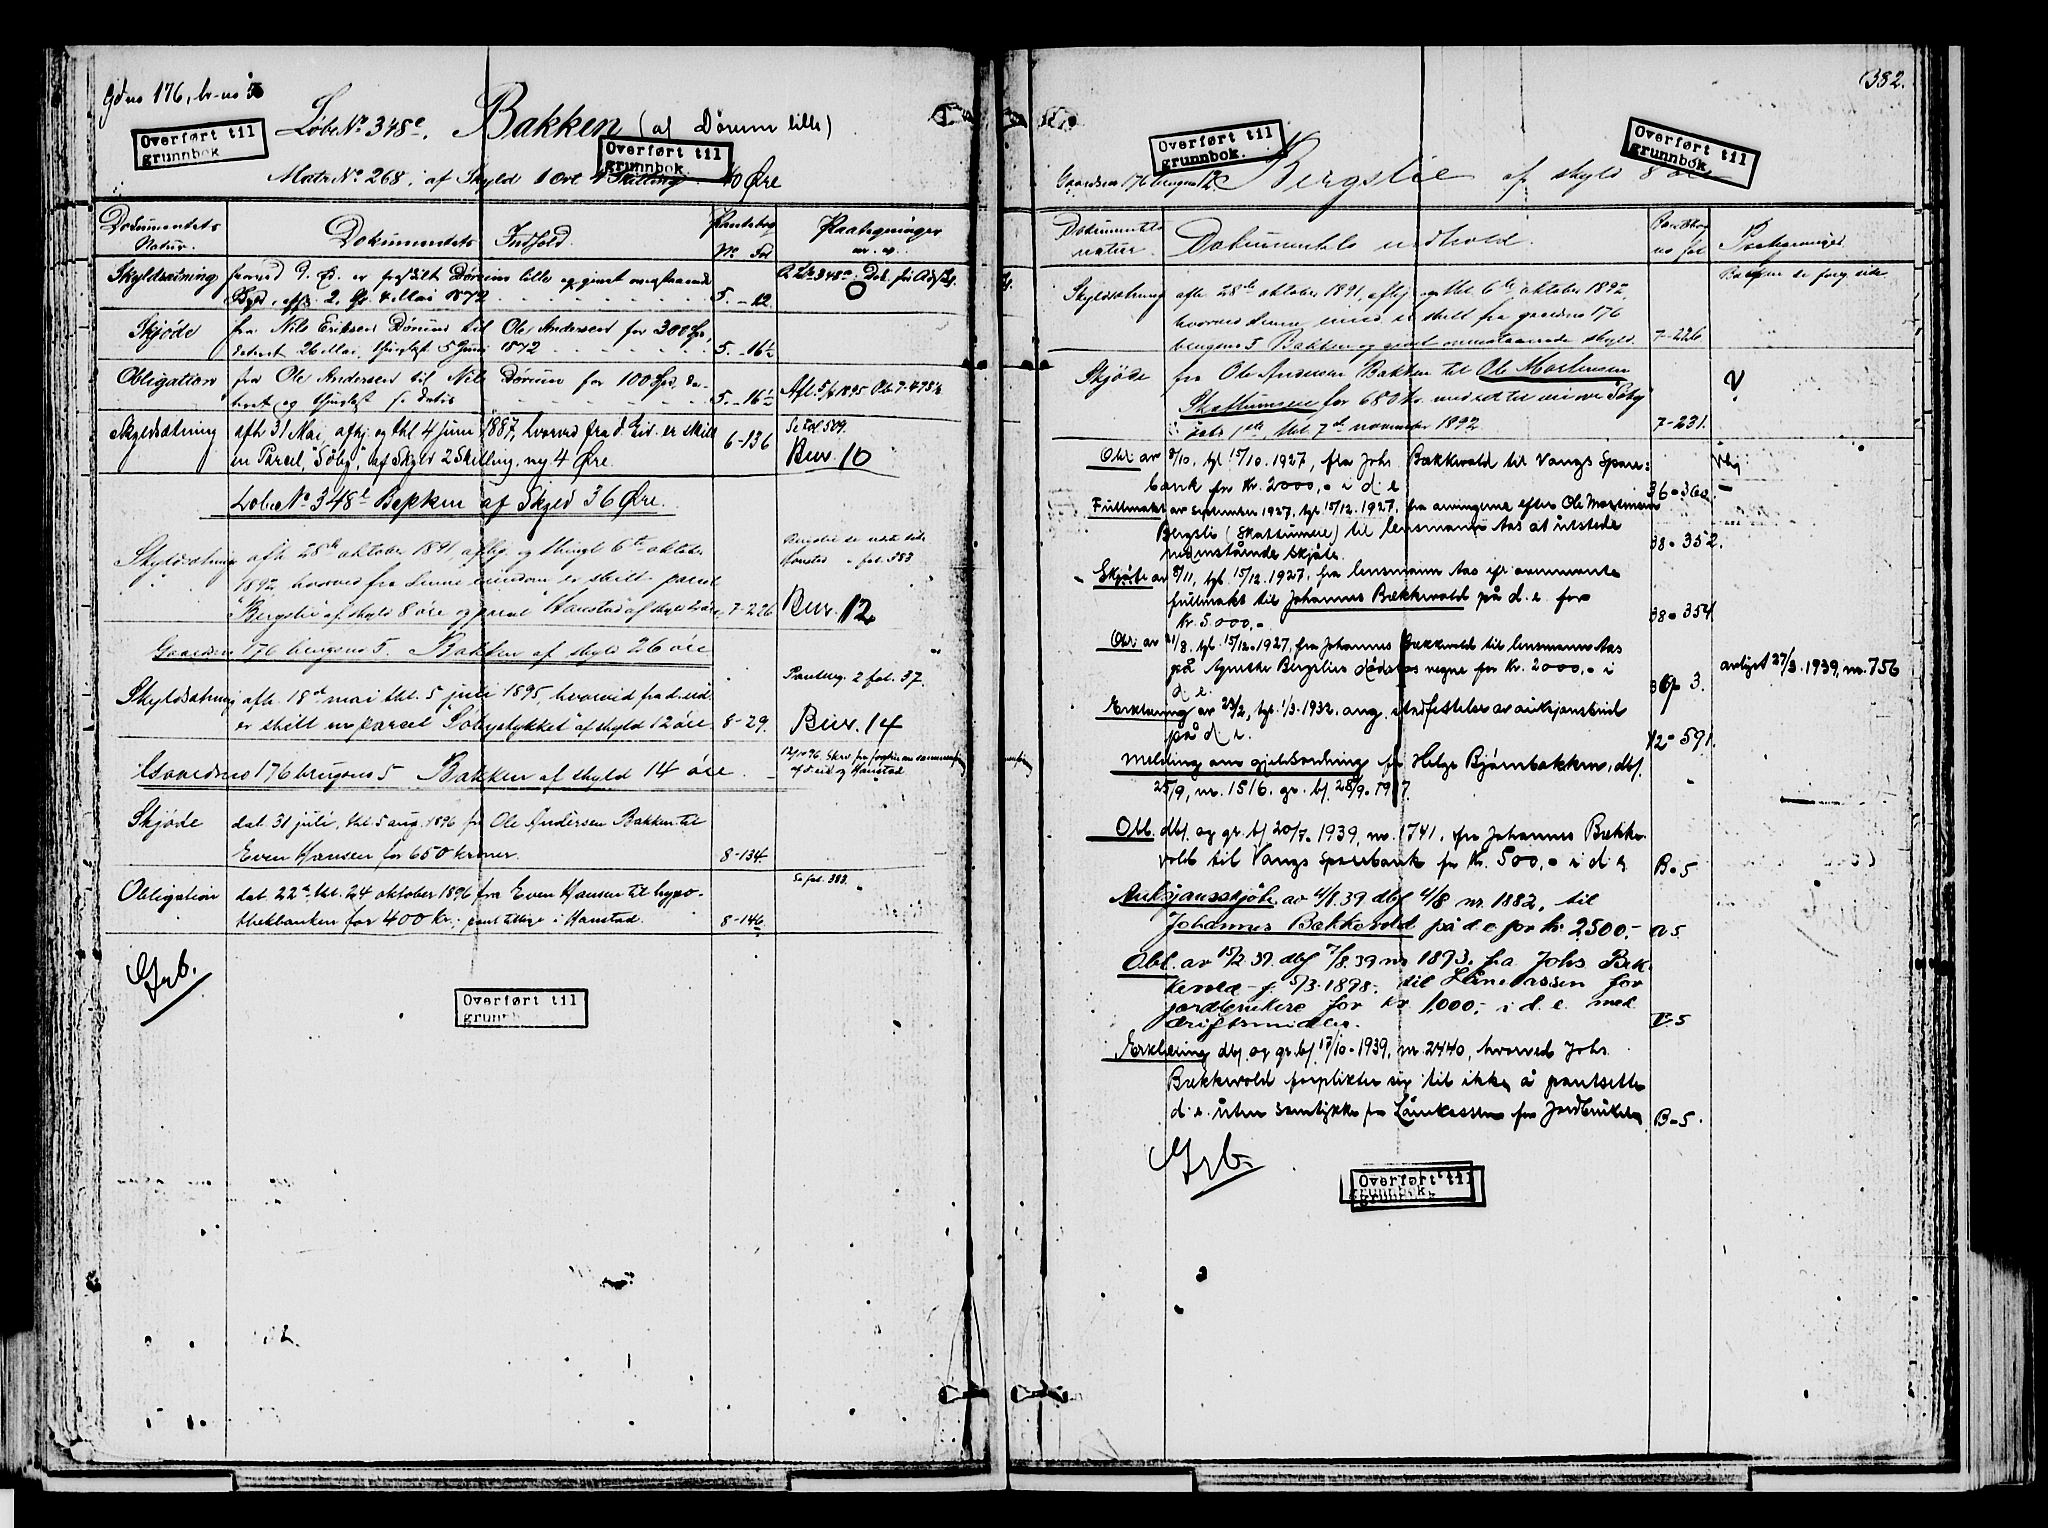 Gdno 176, br-no 5
Løbe No 348e. Bakken (af Dörum lille)
Overført til
grunnbok
Overført til
grunnbok
Matr No 268, af Skyld 1 Ort 4 Skilling. 40 Øre
Dokumentets Natur.
Dokumentets Indhold.
Pantebog No Fol
Paategninger
Skyldsætning
hvorved d. E. er fraskilt Dørum lille og givet ovenstaaende
Skyld, afh. 2, thl. 4 Mai 1872
5. - 12
Skjøde
fra Nils Eriksen Dörum til Ole Andersen for 300 Spd,
dateret 26 Mai, thinglæst 5 Juni 1872
5. - 16
Obligation
fra Ole Andersen til Nils Dörum for 100 Spd. da-
teret og thinglæst s. datis
5. - 16
Afl. 5/6 1895
Skyldsætning
afh 31 Mai, afhj og thl 4 Juni 1887, hvorved fra d. Eid. er skilt
en Parcel, "Söby", af Skyld 2 Skilling, ny 4 Øre.
6-136
Se fol 509.
Bnr. 10
Løbe No 348e Bakken af Skyld 36 Øre.
Skyldsætning
afh. 28de oktober 1891 afhj. og thingl 6te oktober
1892, hvorved fra denne eiendom er skilt parcel
"Bergslie" af skyld 8 öre og parcel "Hanstad" af skyld 2 öre
7-226
Bergslie se næste side
Hanstad " fol. 383
Bnr. 12
Gaardsno 176 brugsno 5. Bakken af skyld 26 öre
Skyldsætning
afh. 18de mai thl. 5 juli 1895, hvorved fra d. eid.
er skilt en parcel "Sobystykket" af skyld 12 öre.
8-29.
Panteg. 2 fol. 37.
Bnr. 14
Gaardsno 176 brugsno 5 Bakken af skyld 14 öre.
Skjøde
dat. 31 juli, thl. 5 aug. 1896 fra Ole Andersen Bakken til
Even Hansen for 650 kroner.
8-134
Obligation
dat. 22de thl. 24 oktober 1896 fra Even Hansen til hypo-
thekbanken for 400 kr.; pant tillige i Hanstad.
8-146
Se fol. 383.
Grb.
Overført til
grunnb
382.
Overført til
grunnbok.
Overført til
grunnbok
Gaardsno 176 brugsno 12. Bergslie af skyld 8 öre
Dokumentets natur
Dokumentets indhold.
Pantebog no fol
Skyldsætning
afh. 28de oktober 1891, afhj og thl. 6te oktober 1892,
hvorved denne eiend er skilt fra gaardsno 176
brugsno 5 Bakken og givet ovenstaaende skyld.
7-226
Bakken se forg side
Skjøde
fra Ole Andersen Bakken til Ole Mortensen
Skattumseie for 680 kr.
dat. 1ste, thl. 7de november 1892
7-231.
Obl. av 3/10, tgl. 15/10. 1927, fra Johs. Bækkevold til Vangs Spare-
bank for kr. 2000,- i d. e.
36-360.
Fullmakt av september 1927, tgl. 15/12. 1927, fra arvingerne efter Ole Mortensen
Bergslie (Skattumseie) til lensmann Aas at utstede
nedenstående skjøte.
38-352.
Skjøte av 5/11, tgl. 15/12. 1927, fra lensmann Aas ifr. ovennevnte
fullmakt til Johannes Bækkevold på d. e. for
kr. 5000,-
38-354
Obl. av 21/8, tgl. 15/12. 1927, fra Johannes Bækkevold til lensmann Aas
på Agnethe Bergslies dødsbos vegne for kr. 2000,- i
d. e.
avlyst 27/3. 1939, nr. 756
Erklæring av 23/2, tgl. 1/3-1932. ang. stadfestelse av auksjonsbud
på d. e.
42-591.
Melding om gjeldsordning fra Helge Bjørnbakken, dbf.
25/9, nr. 1516. gr. bf. 28/9-1937.
Obl. dbf. og gr. bf 20/7-1939, nr. 1741, fra Johannes Bække-
vold til Vangs Sparebank for kr. 500,- i d. e
B-5
Auksjonsskjøte, av 4/8.39 dbf 4/8 nr. 1882, til
Johannes Bækkevold på d. e. for kr. 2500,-
Obl. av 15/2.39. dbf 7/8.39 nr 1893. fra Johs Bæk-
kevold - f. 5/3-1898- til Lånekassen for
jordbrukere for kr 1,000,- i d. e. med
driftsmidler.
Erklæring dbf. og gr. bf. 17/10-1939, nr. 2440, hvorved Johs.
Bækkevold forplikter sig til ikke å pantsette
d. e. uten samtykke fra Lånekassen for Jordbrukere
B-5.
Grb.
Overført til
grunnbok.